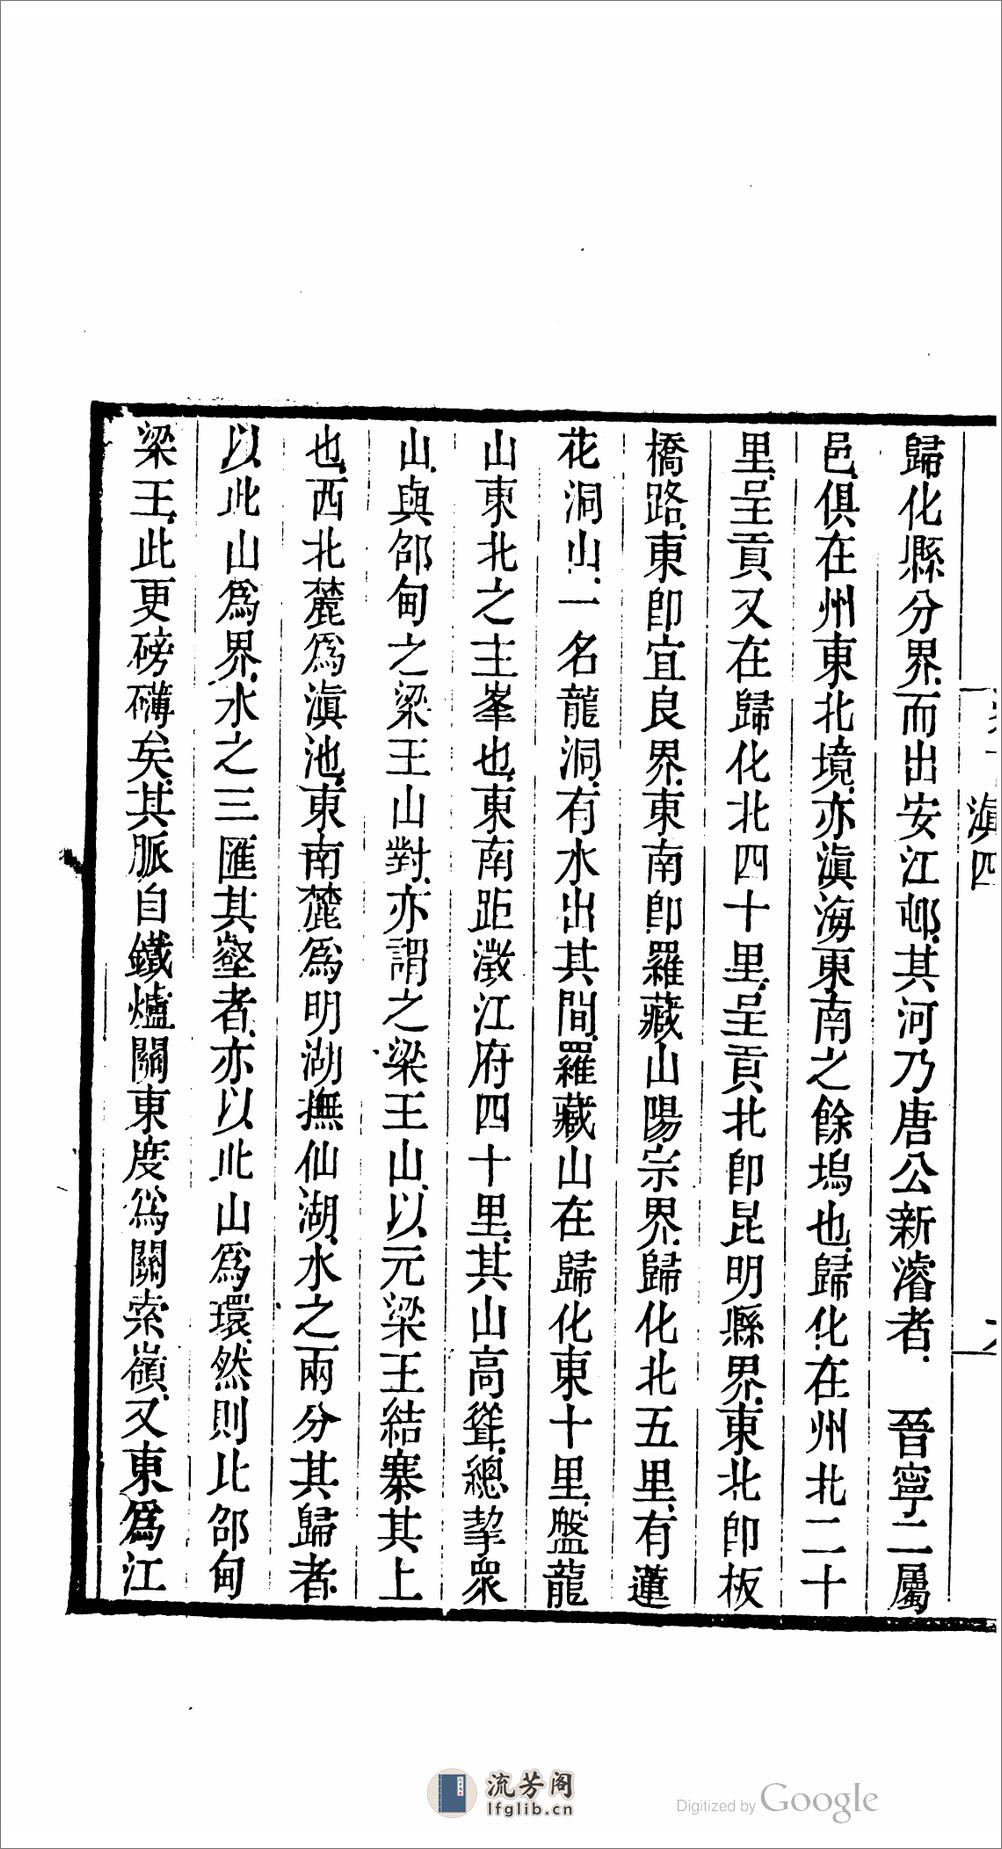 滇四
歸化縣分界、而出安江邨、其河乃唐公新濬者、　晉寧二屬
邑、俱在州東北境、亦滇海東南之餘塢也、歸化、在州北二十
里、呈貢又在歸化北四十里、呈貢北卽昆明縣界、東北卽板
橋路、東卽宜良界、東南卽羅藏山陽宗界、歸化北五里、有蓮
花洞山、一名龍洞、有水出其間、羅藏山在歸化東十里、盤龍
山東北之主峯也、東南距澂江府四十里、其山高聳、總挈衆
山、與邵甸之梁王山對、亦謂之梁王山、以元梁王結寨其上
也、西北麓爲滇池、東南麓爲明湖撫仙湖、水之兩分其歸者、
以此山爲界、水之三匯其壑者、亦以此山爲環、然則比邵甸
梁王、此更磅礴矣、其脈自鐵爐關東度爲關索嶺、又東爲江
流芳阁
lfglib.cn
Digitized by Google